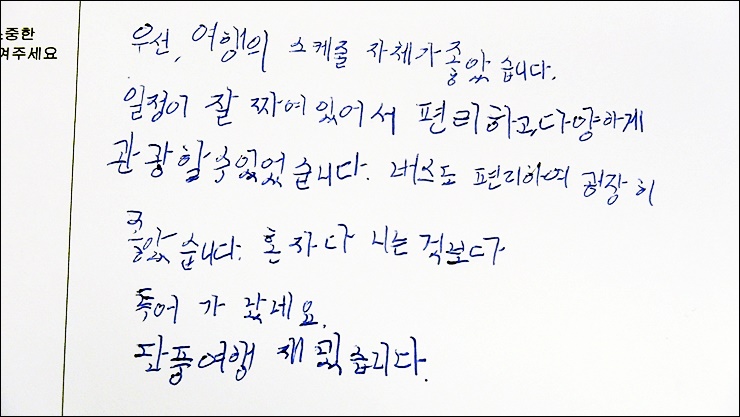 소중한
여주세요
우선, 여행의 스케줄 자체가 좋았습니다.
일정이 잘 짜여있어서 편리하고, 다양하게
관광할 수 있었습니다. 버스도 편리하며 굉장히
좋았습니다. 혼자 다니는 것보다
투어가 낫네요.
단풍여행 재밌습니다.